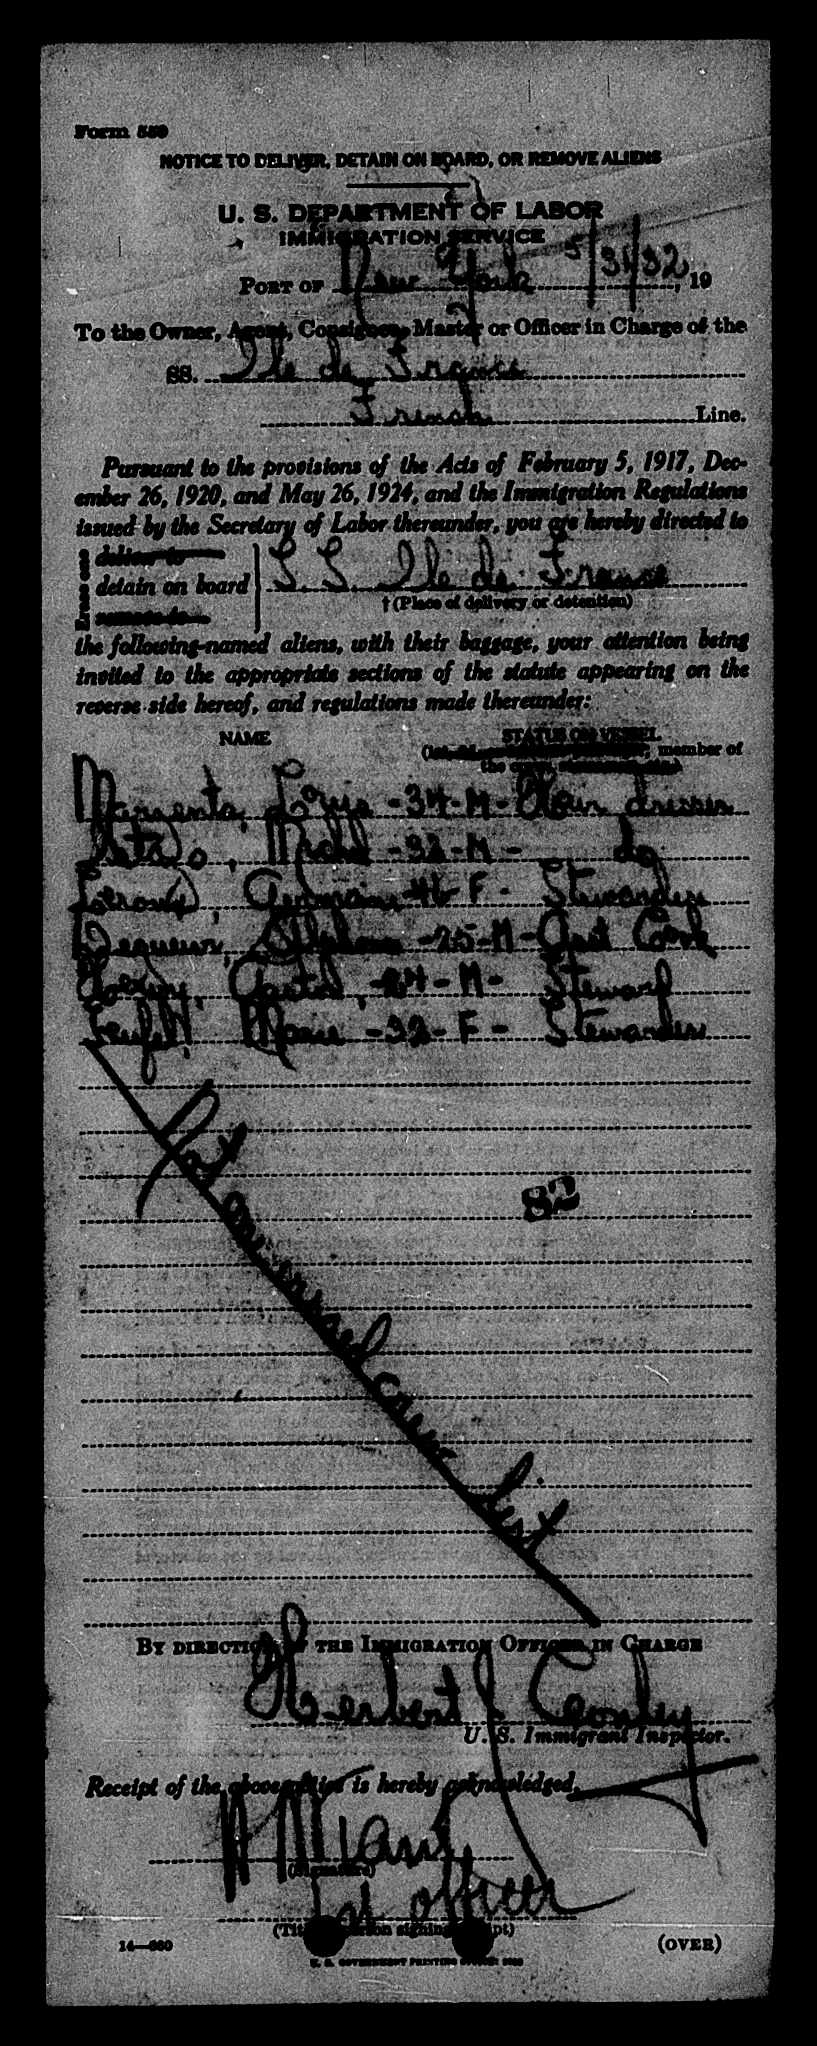 Form 559
NOTICE TO DELIVER, DETAIN ON BOARD, OR REMOVE ALIENS
U. S. DEPARTMENT OF LABOR
IMMIGRATION SERVICE
PORT OF New York 5/31/32, 19
To the Owner, Agent, Consignee, Master or Officer in Charge of the
SS. Ile de France
French Line.
Pursuant to the provisions of the Acts of February 5, 1917, Dec-
ember 26, 1920, and May 26, 1924, and the Immigration Regulations
issued by the Secretary of Labor thereunder, you are hereby directed to
deliver to
detain on board S.S. Ile de France
remove to
†(Place of delivery or detention)
the following-named aliens, with their baggage, your attention being
invited to the appropriate sections of the statute appearing on the
reverse side hereof, and regulations made thereunder:
NAME STATUS ON VESSEL
member of
the crew
Louis - 34 - M - Hair dresser
Michel - 32 - M - do
Germaine 46 F - Stewardess
- 25 - M - Asst Cook
Gaston, - 24 - M - Steward
Marie - 32 - F - Stewardess
Not on visaed crew list
82
BY DIRECTION OF THE IMMIGRATION OFFICER IN CHARGE
Herbert
U. S. Immigrant Inspector.
Receipt of the above notice is hereby acknowledged.
(Signature)
1st officer
(Title of person signing receipt)
14—560 (OVER)
U. S. GOVERNMENT PRINTING OFFICE